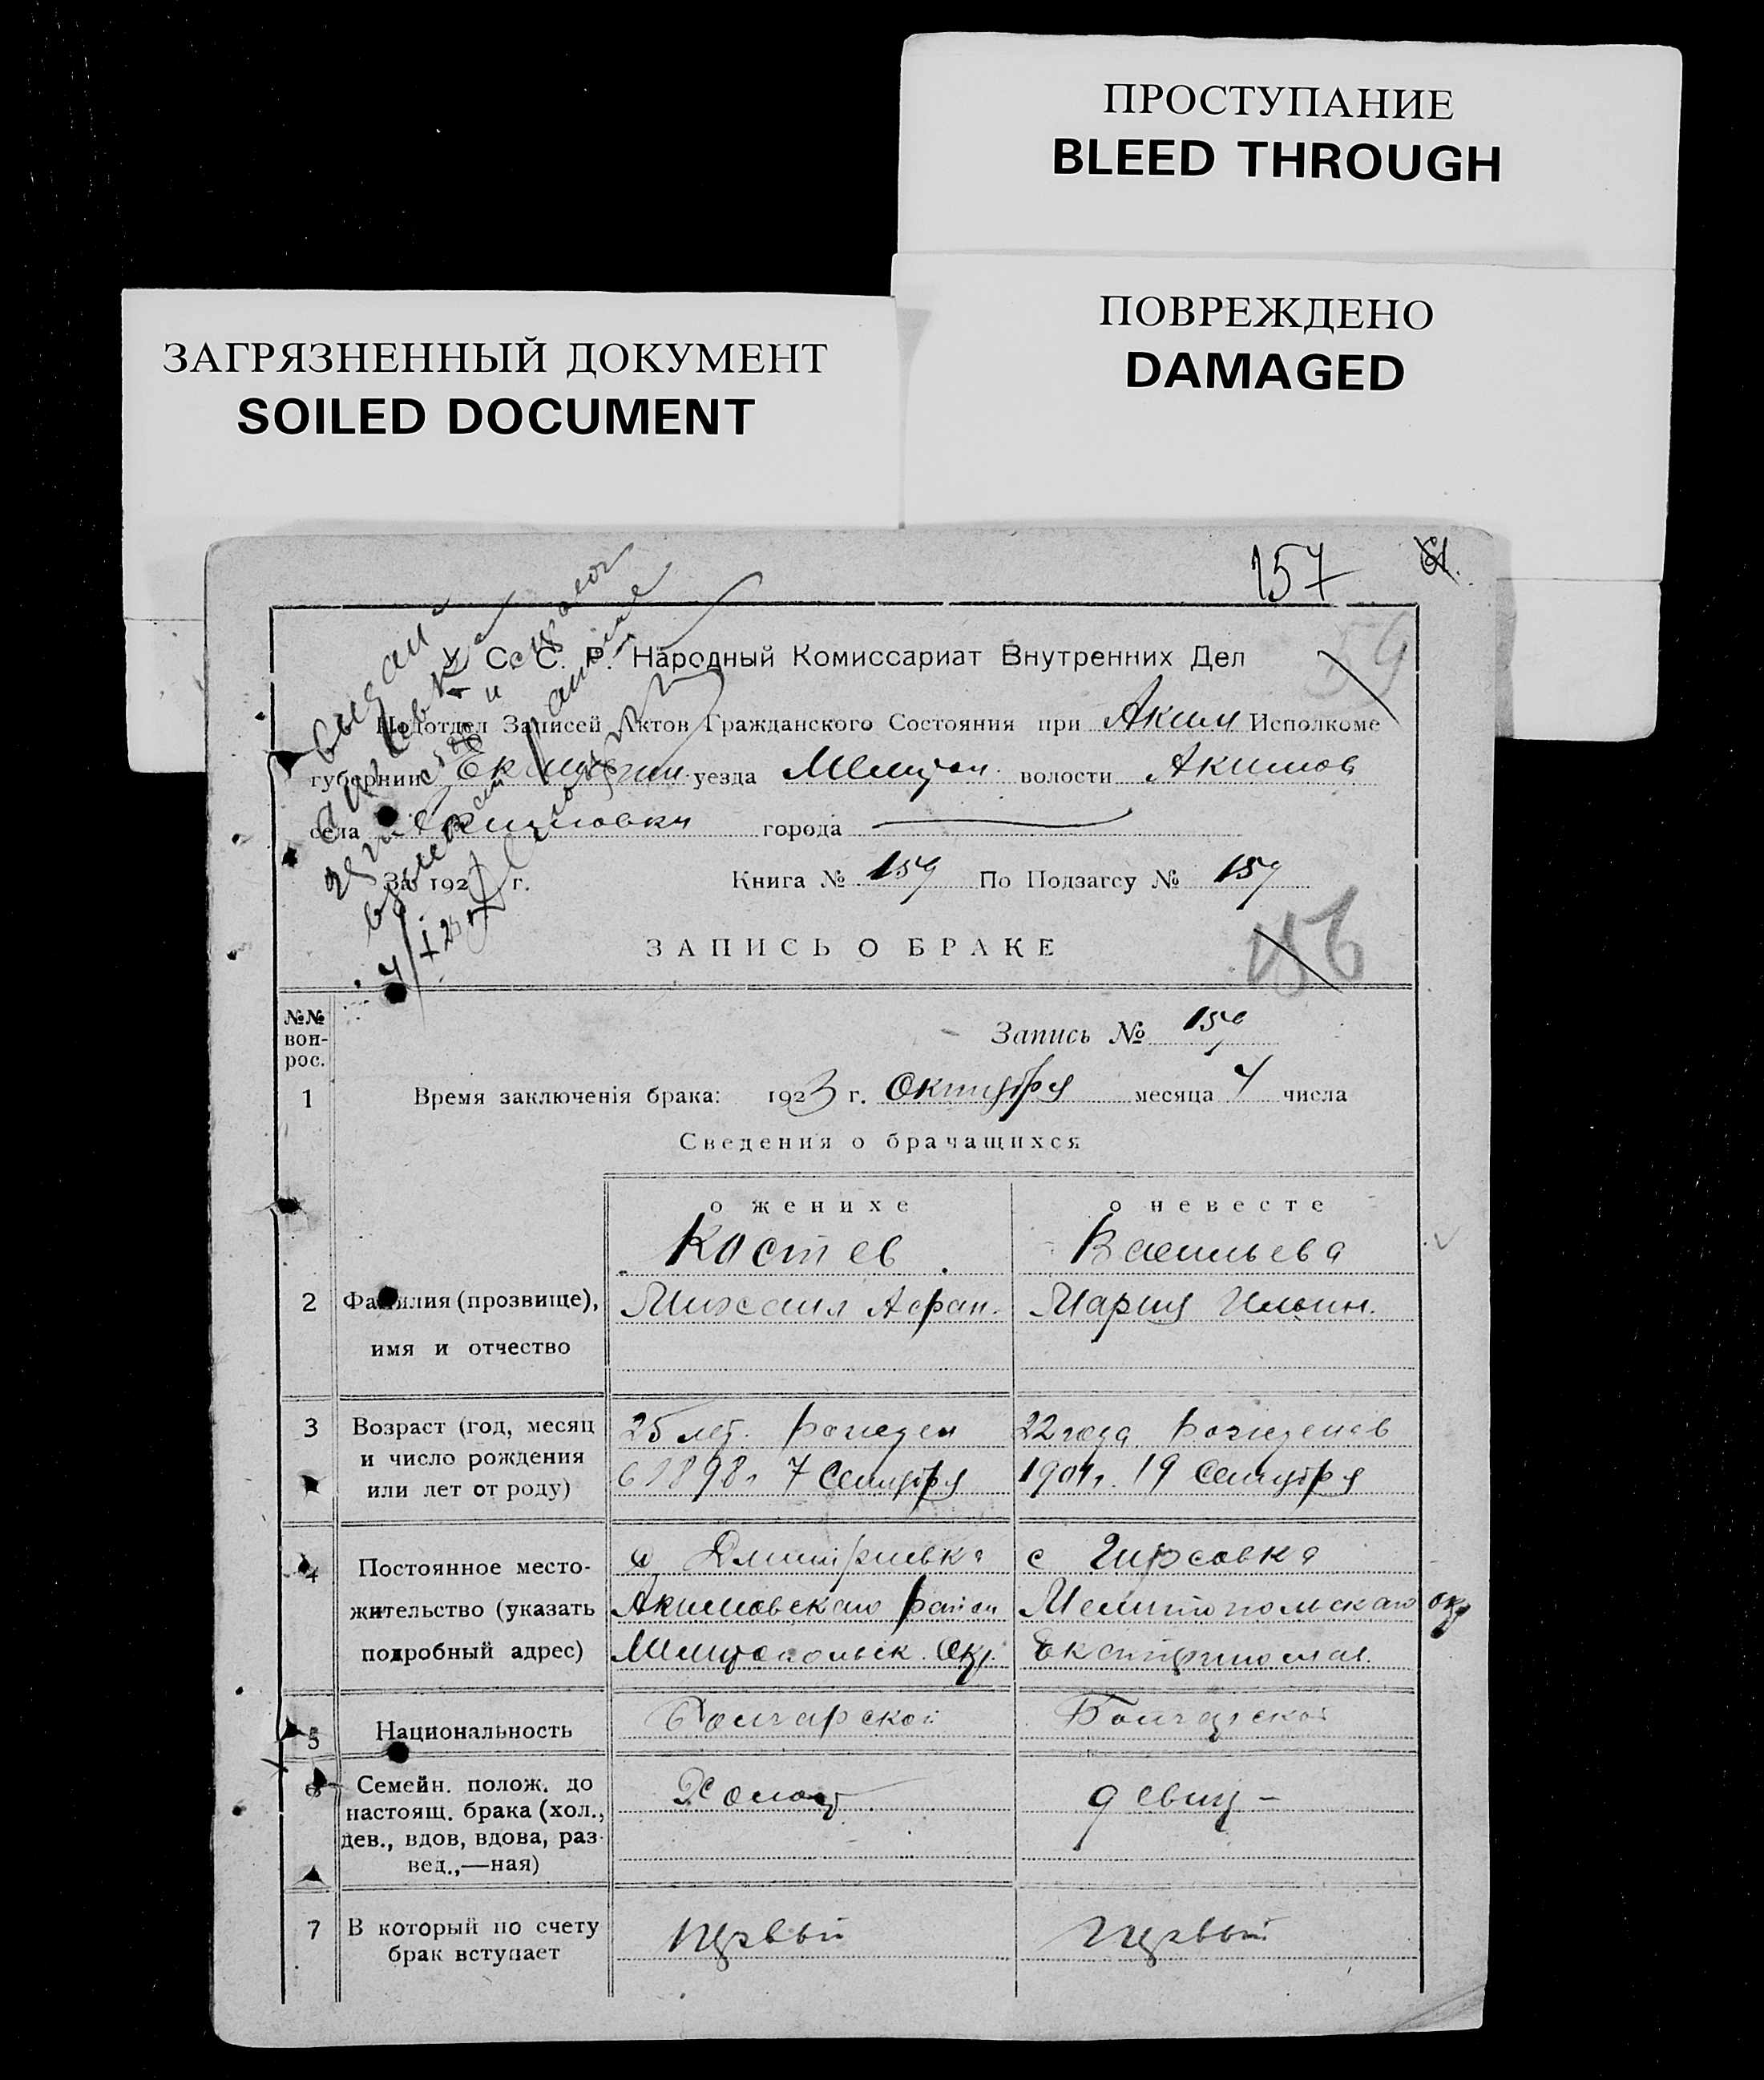 ПРОСТУПАНИЕ
BLEED THROUGH
ПОВРЕЖДЕНО
DAMAGED
ЗАГРЯЗНЕННЫЙ ДОКУМЕНТ
SOILED DOCUMENT
157
59
У. С. С. Р. Народный Комиссариат Внутренних Дел
Подотдел Записей Актов Гражданского Состояния при Аким Исполкоме
губернии Екатерин. уезда Мелитоп. волости Акимов
села Акимовки города
За 192 г. Книга № 159 По Подзагсу № 159
ЗАПИСЬ О БРАКЕ
156
№№ воп-
рос.
Запись № 159
1 Время заключенія брака: 1923 г. Октября месяца 4 числа
Сведения о брачащихся
о женихе о невесте
Костев Васильева
2 Фамилия (прозвище), Михаил Афан. Мария Ильин.
имя и отчество
3 Возраст (год, месяц 25 лет. рожден 22 года рожденав
и число рождения в 1898 г 7 Сентября 1901 г. 19 Сентября
или лет от роду)
4 Постоянное место- с Дмитриевка с Гирсовка
жительство (указать Акимовскаго район Мелитопольскаго окр
подробный адрес) Мелитопольск. Окр. Екатеринослав.
5 Национальность Болгарской Болгарской
6 Семейн. полож. до Холост девиц –
настоящ. брака (хол.,
дев., вдов, вдова, раз-
вед.,—ная)
7 В который по счету первый первый
брак вступает